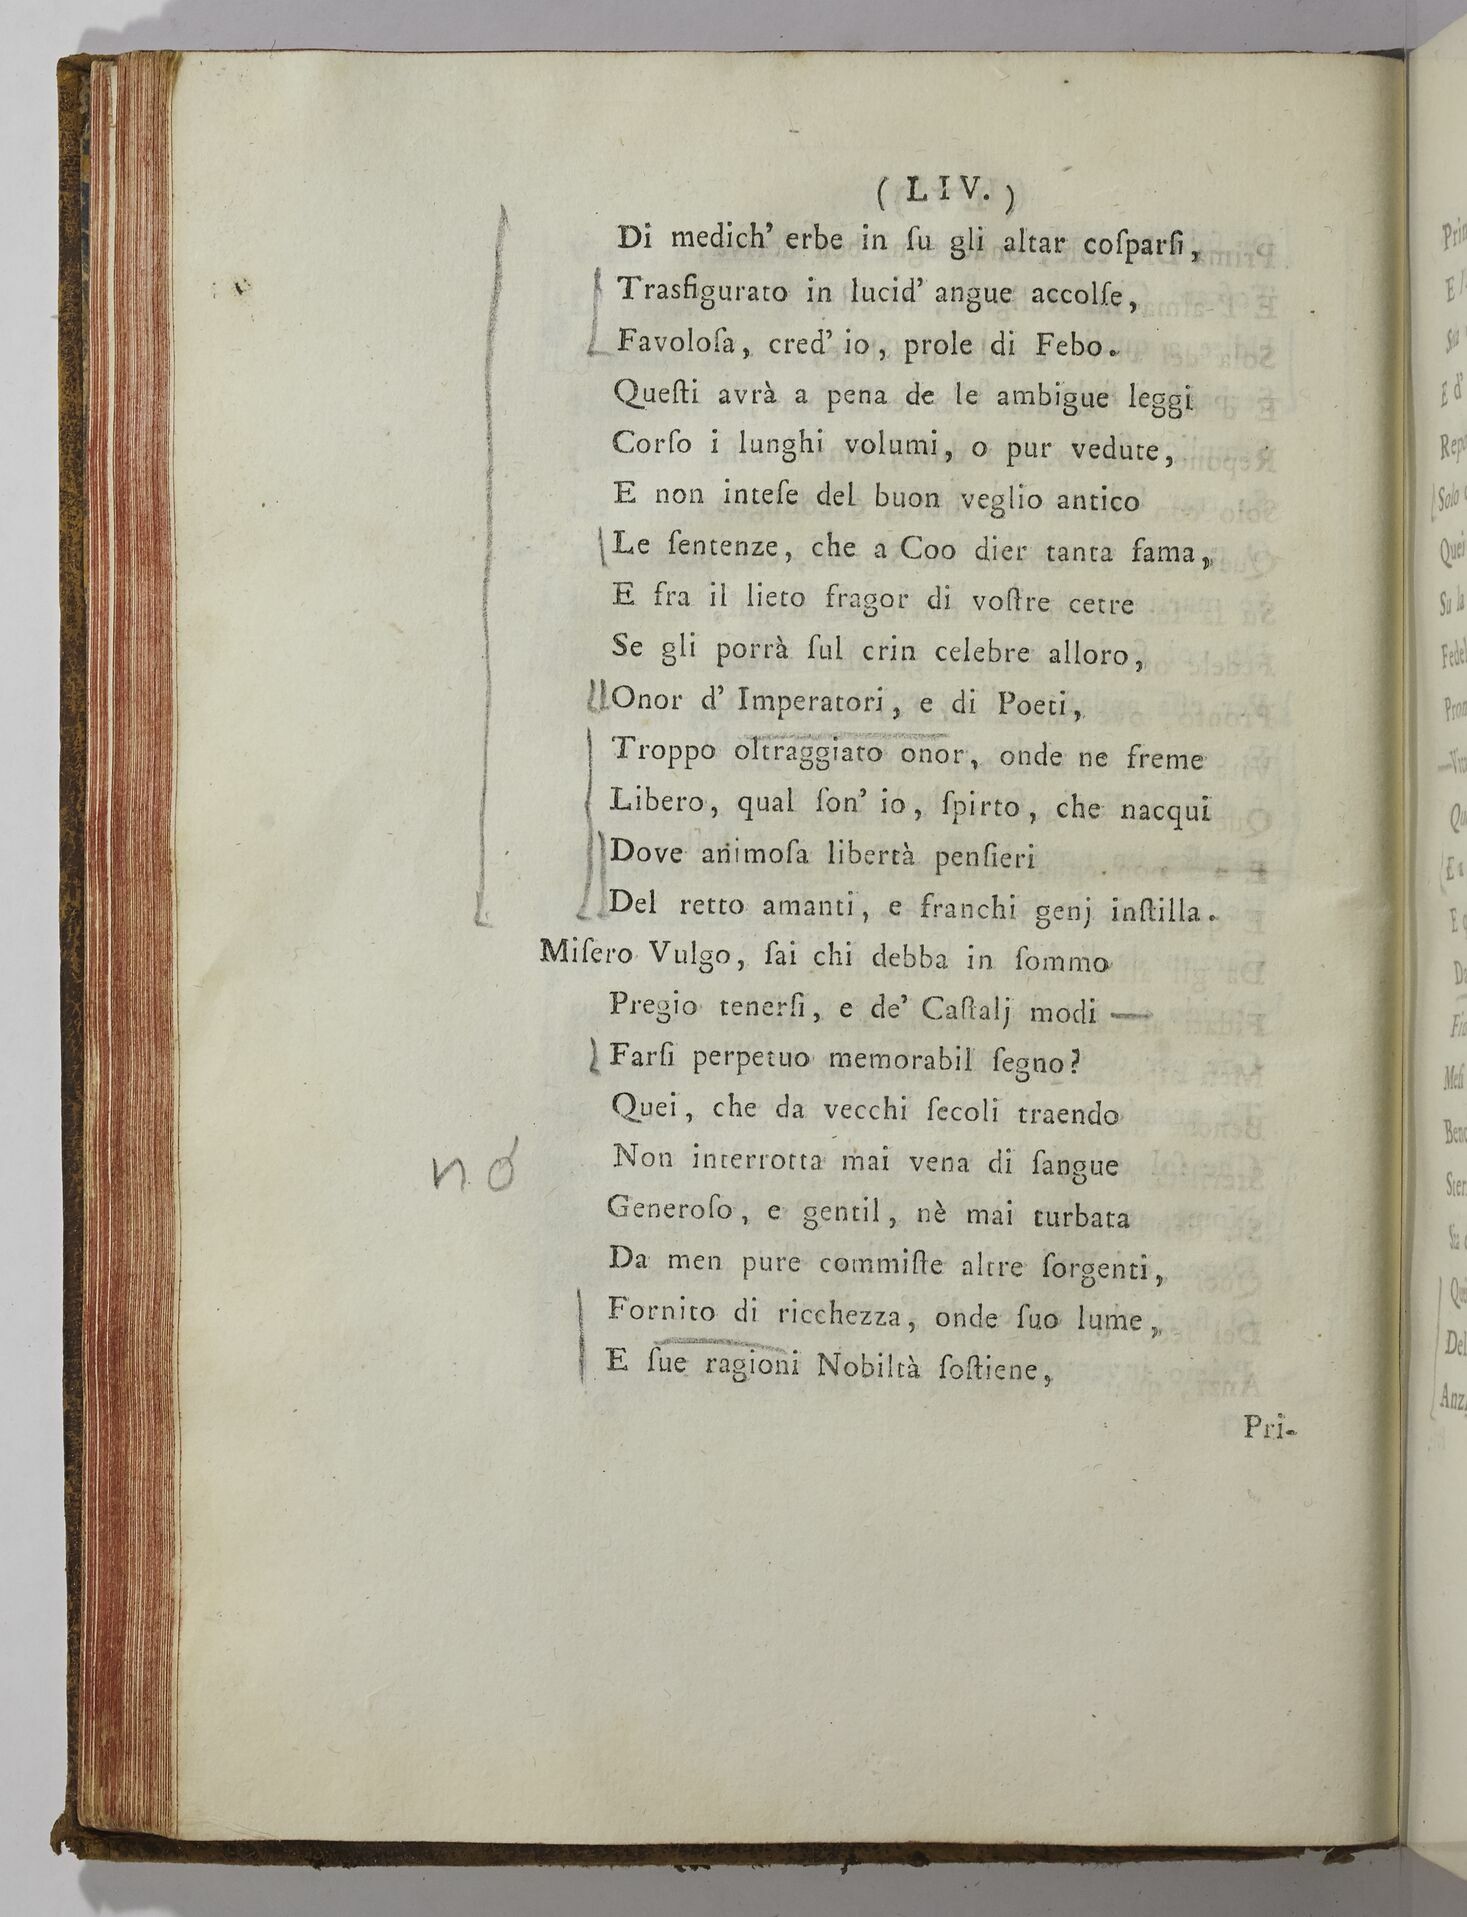 ( LIV. )
Di medich' erbe in ſu gli altar coſparſi,
Trasfigurato in lucid' angue accolſe,
Favoloſa, cred' io, prole di Febo.
Queſti avrà a pena de le ambigue leggi
Corſo i lunghi volumi, o pur vedute,
E non inteſe del buon veglio antico
Le ſentenze, che a Coo dier tanta fama,
E fra il lieto fragor di voſtre cetre
Se gli porrà ſul crin celebre alloro,
Onor d' Imperatori, e di Poeti,
Troppo oltraggiato onor, onde ne freme
Libero, qual ſon' io, ſpirto, che nacqui
Dove animoſa libertà penſieri
Del retto amanti, e franchi genj inſtilla.
Miſero Vulgo, ſai chi debba in ſommo
Pregio tenerſi, e de' Caſtalj modi
Farſi perpetuo memorabil ſegno?
Quei, che da vecchi ſecoli traendo
nó
Non interrotta mai vena di ſangue
Generoſo, e gentil, nè mai turbata
Da men pure commiſte altre ſorgenti,
Fornito di ricchezza, onde ſuo lume,
E ſue ragioni Nobiltà ſoſtiene,
Pri-